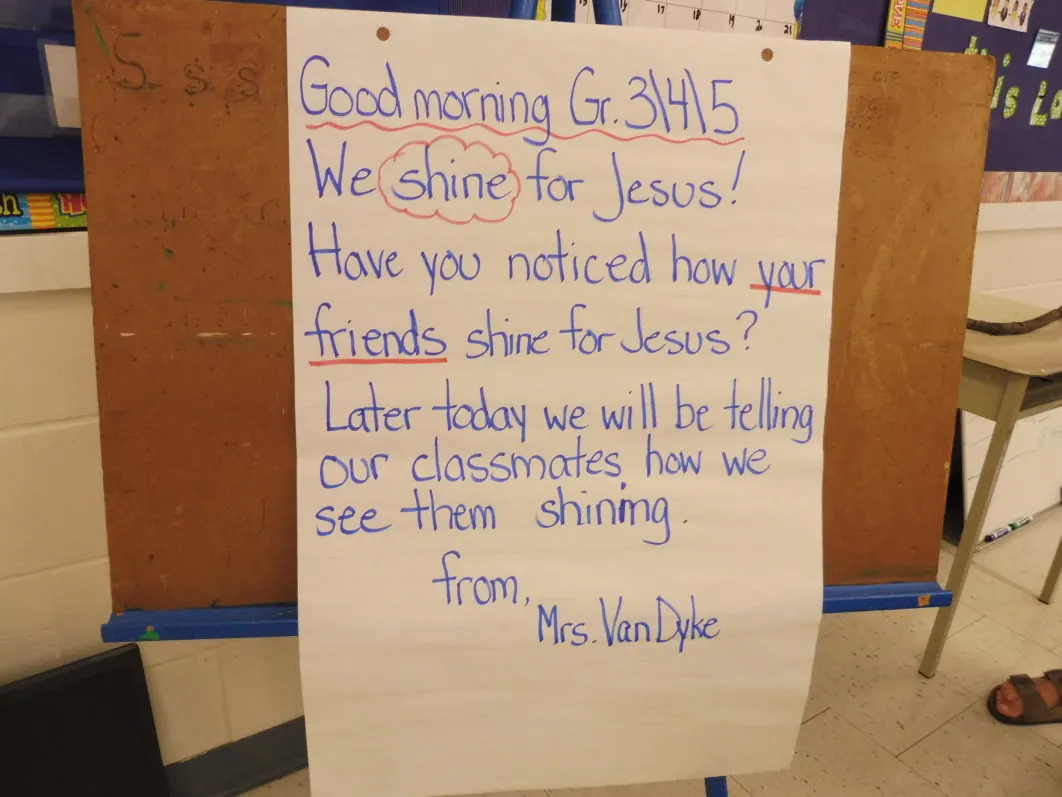 17 18 19 20 21
S s s
Good morning Gr. 3\4\5
We shine for Jesus!
Have you noticed how your
friends shine for Jesus?
Later today we will be telling
our classmates how we
see them shining.
from,
Mrs. VanDyke